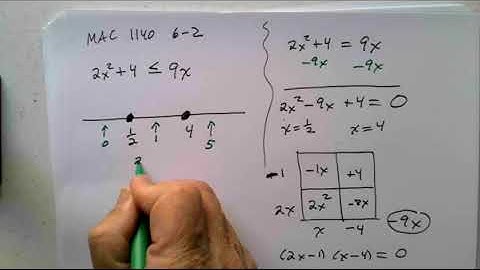 MAC 1140 6-2
2x² + 4 ≤ 9x
0 1/2 1 4 5
2
2x² + 4 = 9x
-9x -9x
2x² - 9x + 4 = 0
x = 1/2 x = 4
-1 -1x +4
2x 2x² -8x
x -4 -9x
(2x-1) (x-4) = 0